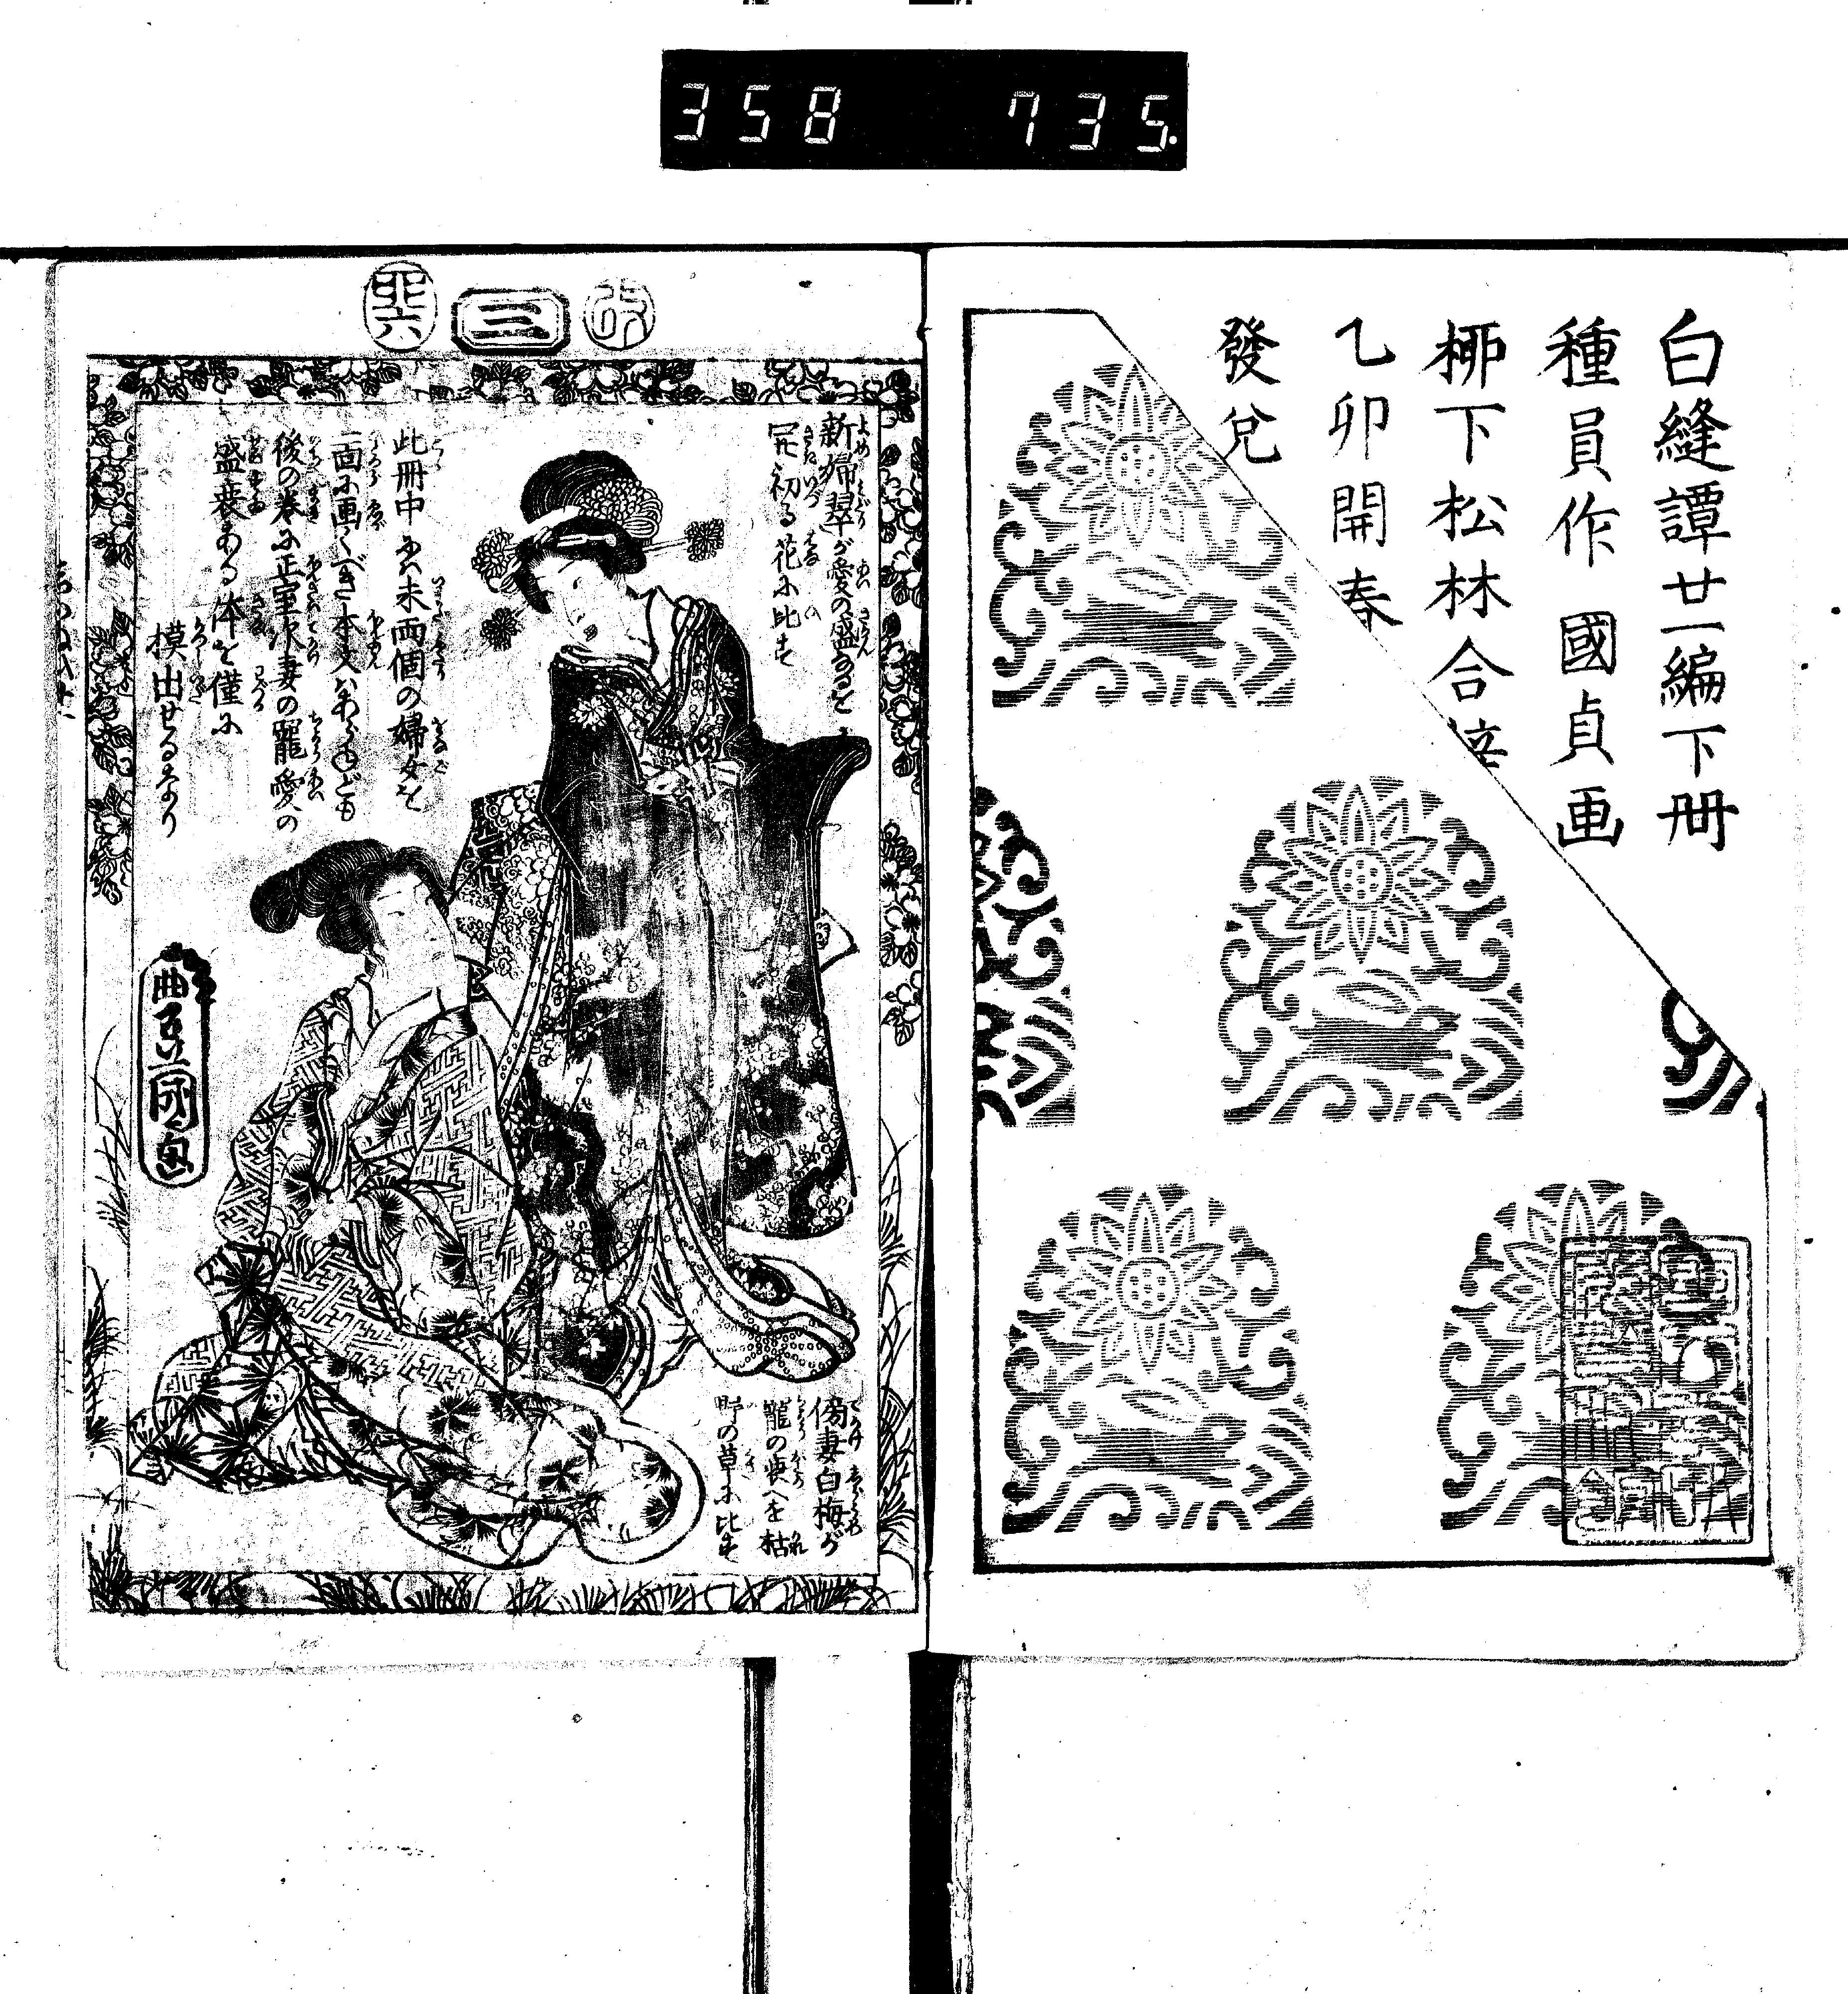 358 735.
白縫譚廿一編下冊
種員作 國貞画
栁下松林合梓
乙卯開春
發兌
改
三
新婦翠が愛の盛なるを
開初る花に比す
此冊中には未両個の婦女を
一面に画くべき本文はあらねども
後の巻に正室次妻の寵愛の
盛衰ある体を僅に
摸出せるなり
豊国画
傍妻白梅が
寵の衰へを枯
野の草に比す